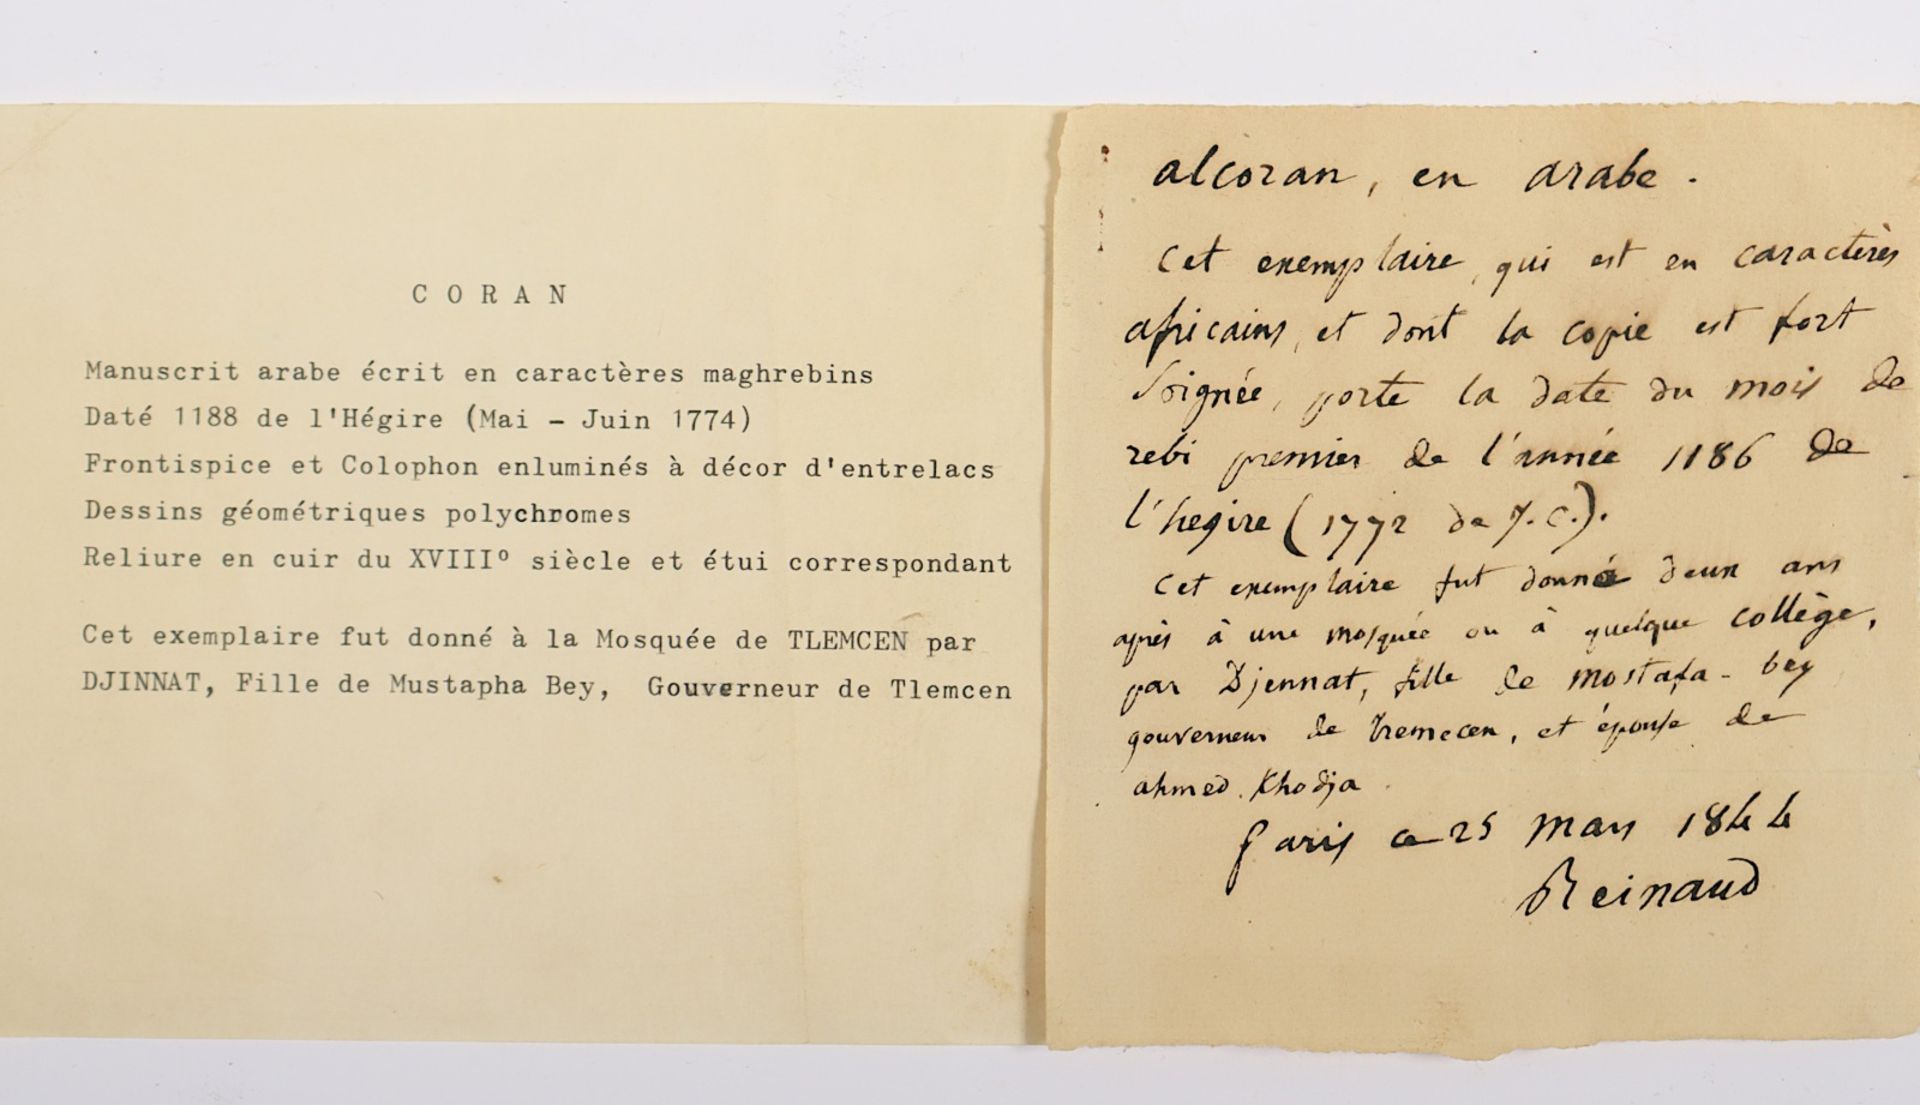 CORAN
Manuscrit arabe écrit en caractères maghrebins
Daté 1188 de l'Hégire (Mai - Juin 1774)
Frontispice et Colophon enluminés à décor d'entrelacs
Dessins géométriques polychromes
Reliure en cuir du XVIII° siècle et étui correspondant
Cet exemplaire fut donné à la Mosquée de TLEMCEN par
DJINNAT, Fille de Mustapha Bey, Gouverneur de Tlemcen
alcoran, en arabe.
Cet exemplaire, qui est en caractères
africains, et dont la copie est fort
soignée, porte la date du mois de
rebi premier de l'année 1186 de
l'hegire (1772 de J. C.).
Cet exemplaire fut donné deux ans
après à une mosquée ou à quelque collège,
par Djennat, fille de mostafa-bey
gouverneur de Tremecen, et épouse de
ahmed. Khodja.
Paris ce 25 mars 1844
Reinaud